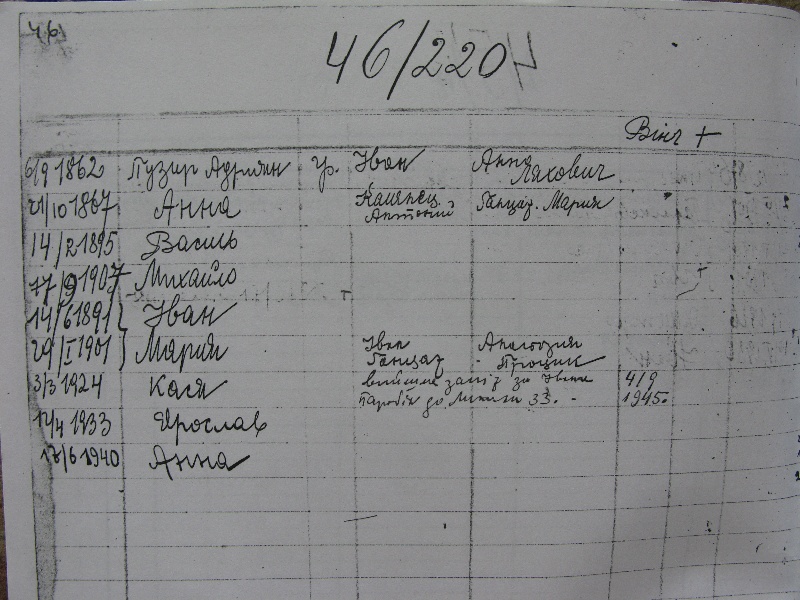 46
46/220
Вінч +
6/9 1862 Пузир Адриян гр. Іван Анна Ляхович
21/10 1867 Анна Каменец Антоній Ганцар Мария
14/2 1895 Василь
17/9 1907 Михайло
14/6 1891 Іван
29/I 1901 Мария Іван Ганцар Анастазия Процик
3/3 1924 Кася вийшла заміж за Івана 4/9
Паробій до 33. 1945.
12/4 1933 Ярослав
17/6 1940 Анна